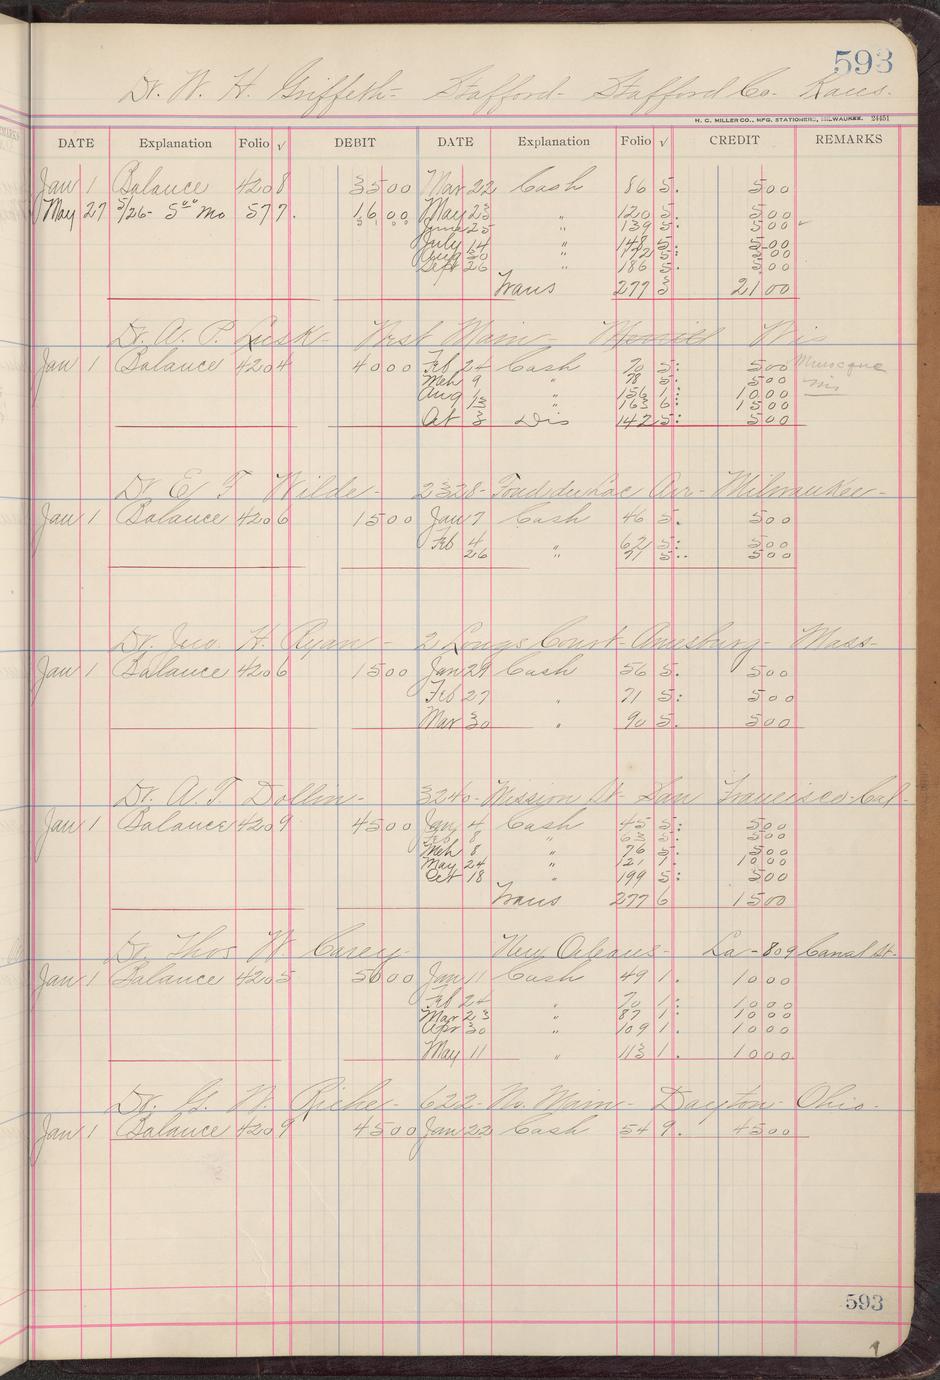 593
Dr. W. H. Griffeth - Stafford - Stafford Co. Kans.
H. C. MILLER CO., MFG. STATIONERS, MILWAUKEE. 24451
DATE Explanation Folio √ DEBIT DATE Explanation Folio √ CREDIT REMARKS
Jan 1 Balance 420 8 35 00 Mar 22 Cash 86 5. 5 00
May 27 5/26 - 5 00 Mo 577. 16 00 May 23 " 120 5. 5 00
June 25 " 139 5: 5 00
July 14 " 148 5: 5 00
Aug 30 " 172 5: 5 00
Sept 26 " 186 5: 5 00
Trans 277 3 21 00
Dr. A. P. Lusk - West Main - Merrill Wis
Jan 1 Balance 420 4 40 00 Feb 24 Cash 70 5: 5 00
Mch 9 " 78 5: 5 00
Aug 1 " 156 1: 10 00
13 " 163 6: 15 00
Oct 3 Dis 142 5: 5 00
Dr. E. F. Wilde - 2328 - Fond du Lac Ave - Milwaukee -
Jan 1 Balance 420 6 15 00 Jan 7 Cash 46 5. 5 00
Feb 4 " 62 5: 5 00
26 71 5.. 5 00
Dr. Jno. H. Ryan - 2 Longs Court - Amesbury - Mass -
Jan 1 Balance 420 6 15 00 Jan 29 Cash 56 5. 5 00
Feb 27 " 71 5: 5 00
Mar 30 " 90 5. 5 00
Dr. A. T. Dollin - 3240 - Mission St - San Francisco - Cal -
Jan 1 Balance 420 9 45 00 Jan 4 Cash 45 5: 5 00
Feb 8 " 63 5: 5 00
Mch 8 " 76 5. 5 00
May 24 " 121 1. 10 00
Oct 18 " 199 5: 5 00
Trans 277 6 15 00
Dr. Thos W. Carey - New Orleans - La - 809 Canal St.
Jan 1 Balance 420 5 50 00 Jan 11 Cash 49 1. 10 00
Feb 24 " 70 1: 10 00
Mar 23 " 87 1: 10 00
Apr 30 " 109 1. 10 00
May 11 " 113 1. 10 00
Dr. G. W. Riche - 622 - No. Main - Dayton - Ohio -
Jan 1 Balance 420 9 45 00 Jan 22 Cash 54 9. 45 00
593